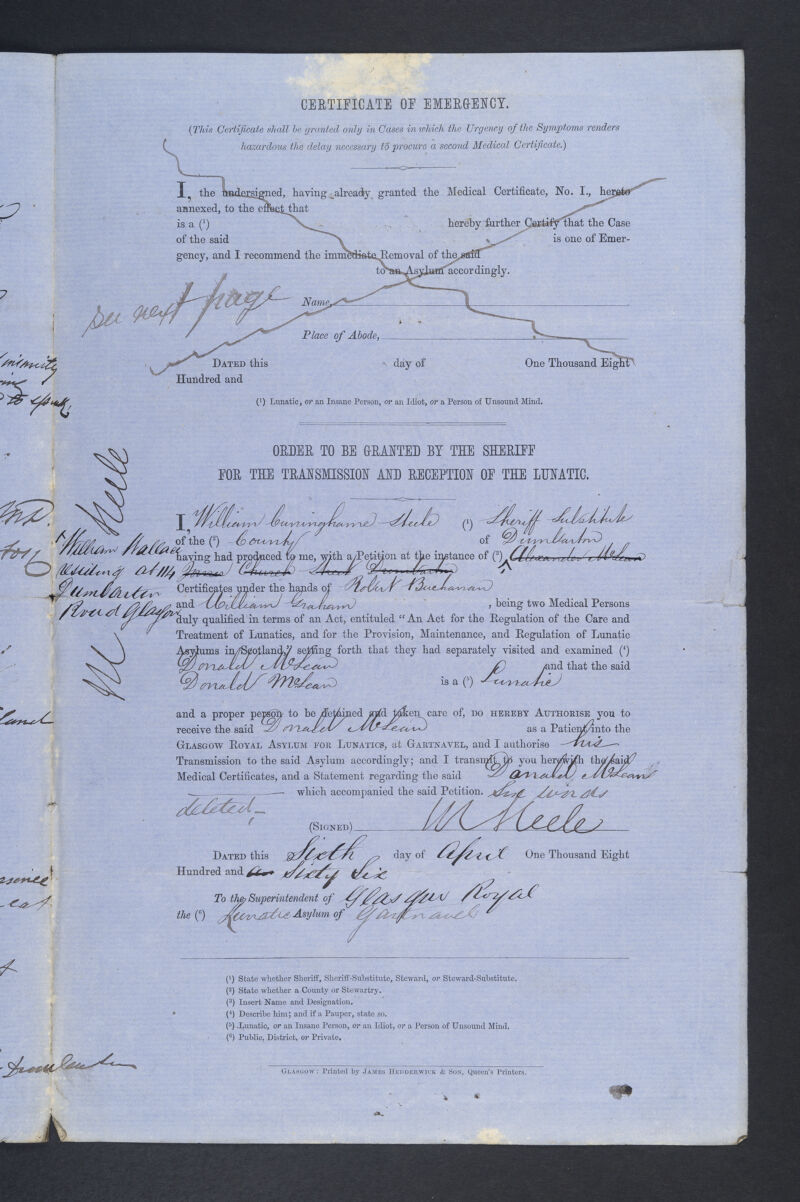 CERTIFICATE OF EMERGENCY.
(This Certificate shall be granted only in Cases in which the Urgency of the Symptoms renders
hazardous the delay necessary to procure a second Medical Certificate.)
I, the undersigned, having already granted the Medical Certificate, No. I., hereto
annexed, to the effect that
is a (¹) hereby further Certify that the Case
of the said is one of Emer-
gency, and I recommend the immediate Removal of the said
to an Asylum accordingly.
see next page
Name,
Place of Abode,
DATED this day of One Thousand Eight
Hundred and
(¹) Lunatic, or an Insane Person, or an Idiot, or a Person of Unsound Mind.
insanity
to speak
ORDER TO BE GRANTED BY THE SHERIFF
FOR THE TRANSMISSION AND RECEPTION OF THE LUNATIC.
I, William Cuninghame Steele (¹) Sheriff Substitute
of the (²) County of Dumbarton
having had produced to me, with a Petition at the instance of (³) Alexander McLean
Church Street Dumbarton
William Wallace
residing at 114
Dumbarton
Road Glasgow
W Steele
Certificates under the hands of Robert Buchanan
and William Graham, being two Medical Persons
duly qualified in terms of an Act, entituled "An Act for the Regulation of the Care and
Treatment of Lunatics, and for the Provision, Maintenance, and Regulation of Lunatic
Asylums in Scotland," setting forth that they had separately visited and examined (⁴)
Donald McLean and that the said
Donald McLean is a (⁵) Lunatic
and a proper person to be detained and taken care of, DO HEREBY AUTHORISE you to
receive the said Donald McLean as a Patient into the
GLASGOW ROYAL ASYLUM FOR LUNATICS, at GARTNAVEL, and I authorise his
Transmission to the said Asylum accordingly; and I transmit to you herewith the said
Medical Certificates, and a Statement regarding the said Donald McLean
which accompanied the said Petition. Six words
deleted,—
(SIGNED) W Steele
DATED this Sixth day of April One Thousand Eight
Hundred and Sixty Six
To the Superintendent of Glasgow Royal
the (⁶) Lunatic Asylum of Gartnavel
(¹) State whether Sheriff, Sheriff-Substitute, Steward, or Steward-Substitute.
(²) State whether a County or Stewartry.
(³) Insert Name and Designation.
(⁴) Describe him; and if a Pauper, state so.
(⁵) Lunatic, or an Insane Person, or an Idiot, or a Person of Unsound Mind.
(⁶) Public, District, or Private.
Dumbarton
GLASGOW: Printed by JAMES HEDDERWICK & SON, Queen's Printers.